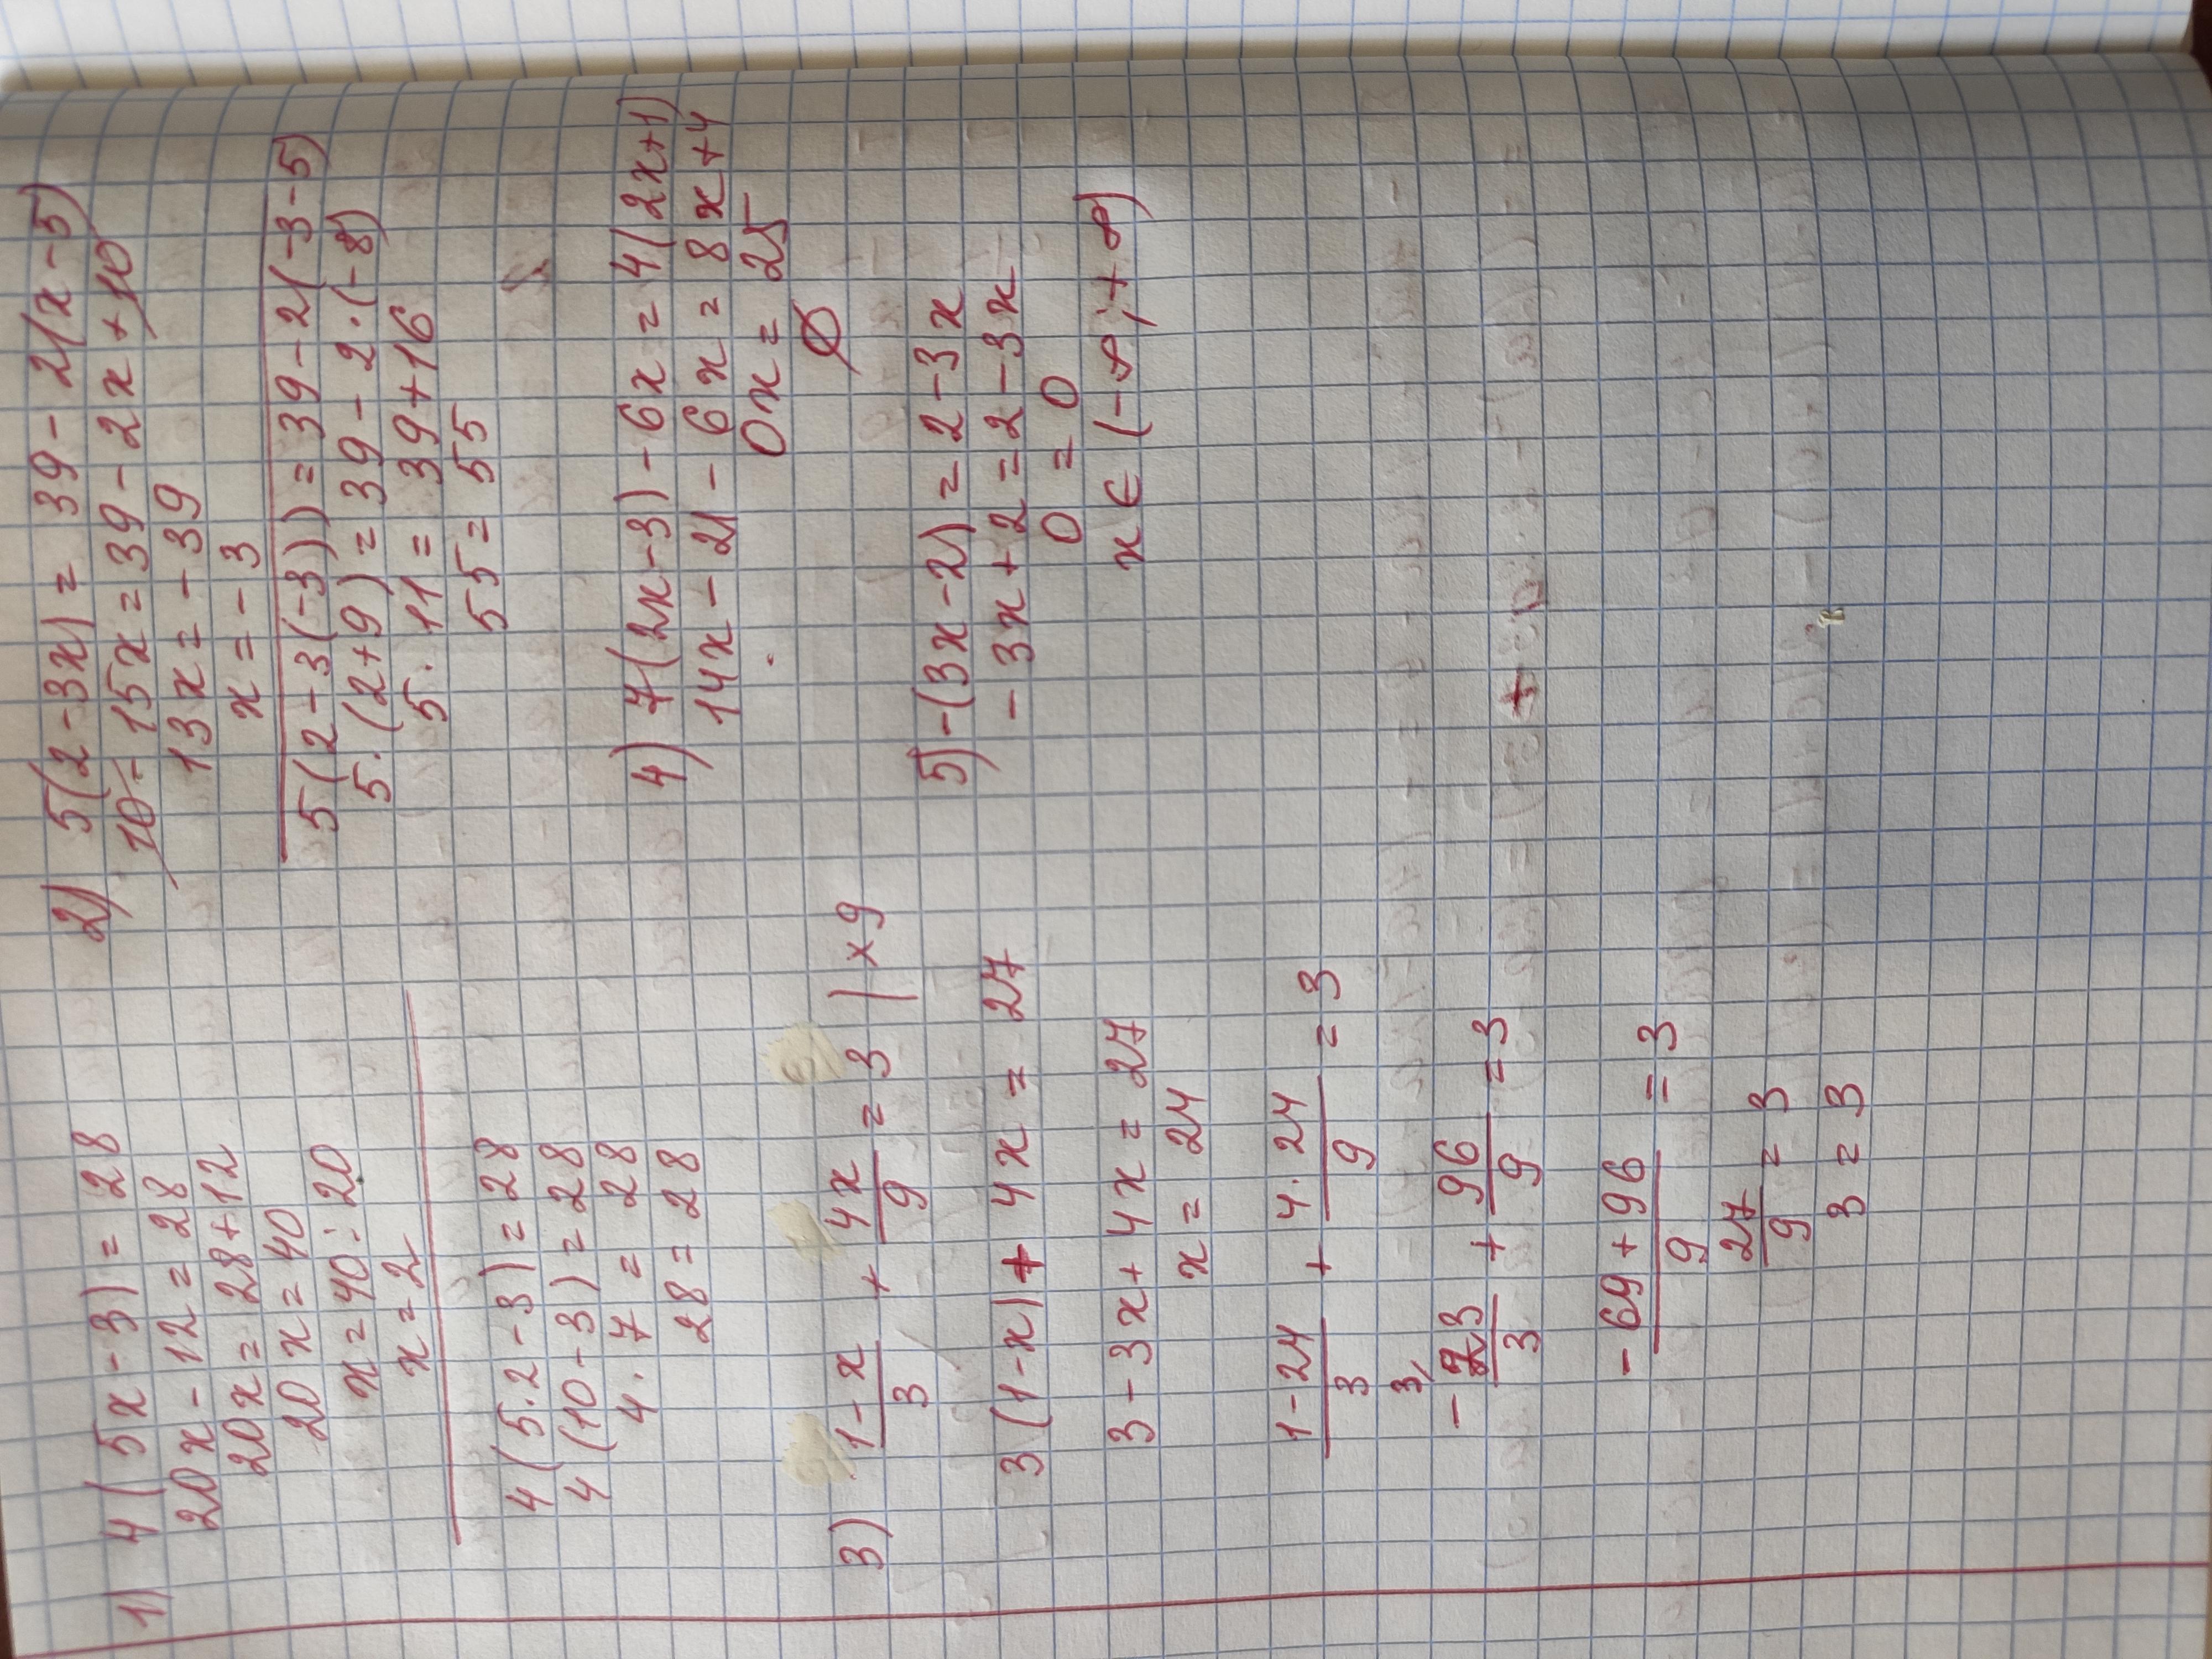 1) 4(5x-3)=28
20x-12=28
20x=28+12
20x=40
x=40:20
x=2
4(5·2-3)=28
4(10-3)=28
4·7=28
28=28
2) 5(2-3x)=39-2(x-5)
10-15x=39-2x+10
13x=-39
x=-3
5(2-3(-3))=39-2(-3-5)
5·(2+9)=39-2·(-8)
5·11=39+16
55=55
3) \frac{1-x}{3} + \frac{4x}{9} = 3 | ×9
3(1-x)+4x=27
3-3x+4x=27
x=24
\frac{1-24}{3} + \frac{4·24}{9} = 3
3/ -\frac{23}{3} + \frac{96}{9} = 3
\frac{-69+96}{9} = 3
\frac{27}{9} = 3
3=3
4) 7(2x-3)-6x=4(2x+1)
14x-21-6x=8x+4
0x=25
∅
5) -(3x-2)=2-3x
-3x+2=2-3x
0=0
x∈(-∞;+∞)